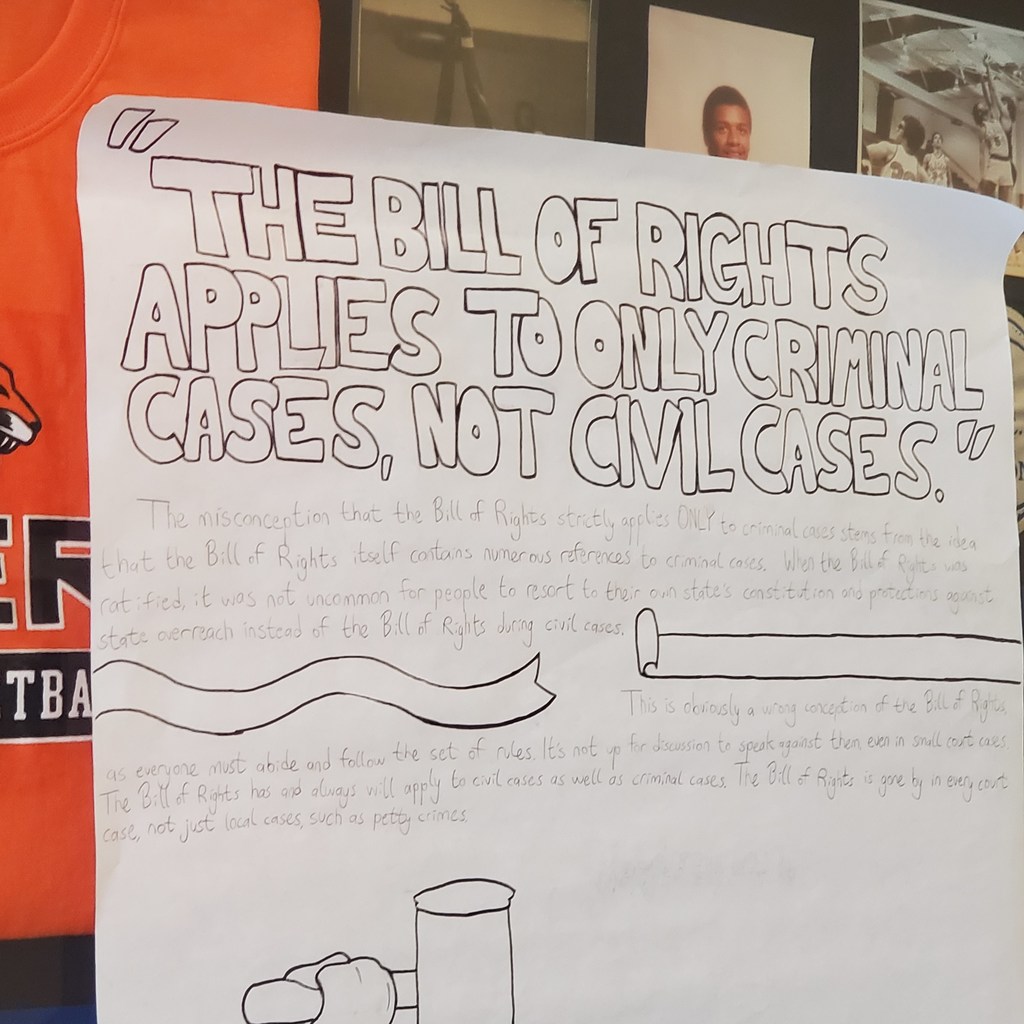 "THE BILL OF RIGHTS
APPLIES TO ONLY CRIMINAL
CASES, NOT CIVIL CASES."
The misconception that the Bill of Rights strictly applies ONLY to criminal cases stems from the idea
that the Bill of Rights itself contains numerous references to criminal cases. When the Bill of Rights was
ratified, it was not uncommon for people to resort to their own state's constitution and protections against
state overreach instead of the Bill of Rights during civil cases.
This is obviously a wrong conception of the Bill of Rights,
as everyone must abide and follow the set of rules. It's not up for discussion to speak against them, even in small court cases.
The Bill of Rights has and always will apply to civil cases as well as criminal cases. The Bill of Rights is gone by in every court
case, not just local cases, such as petty crimes.
ER
TBA